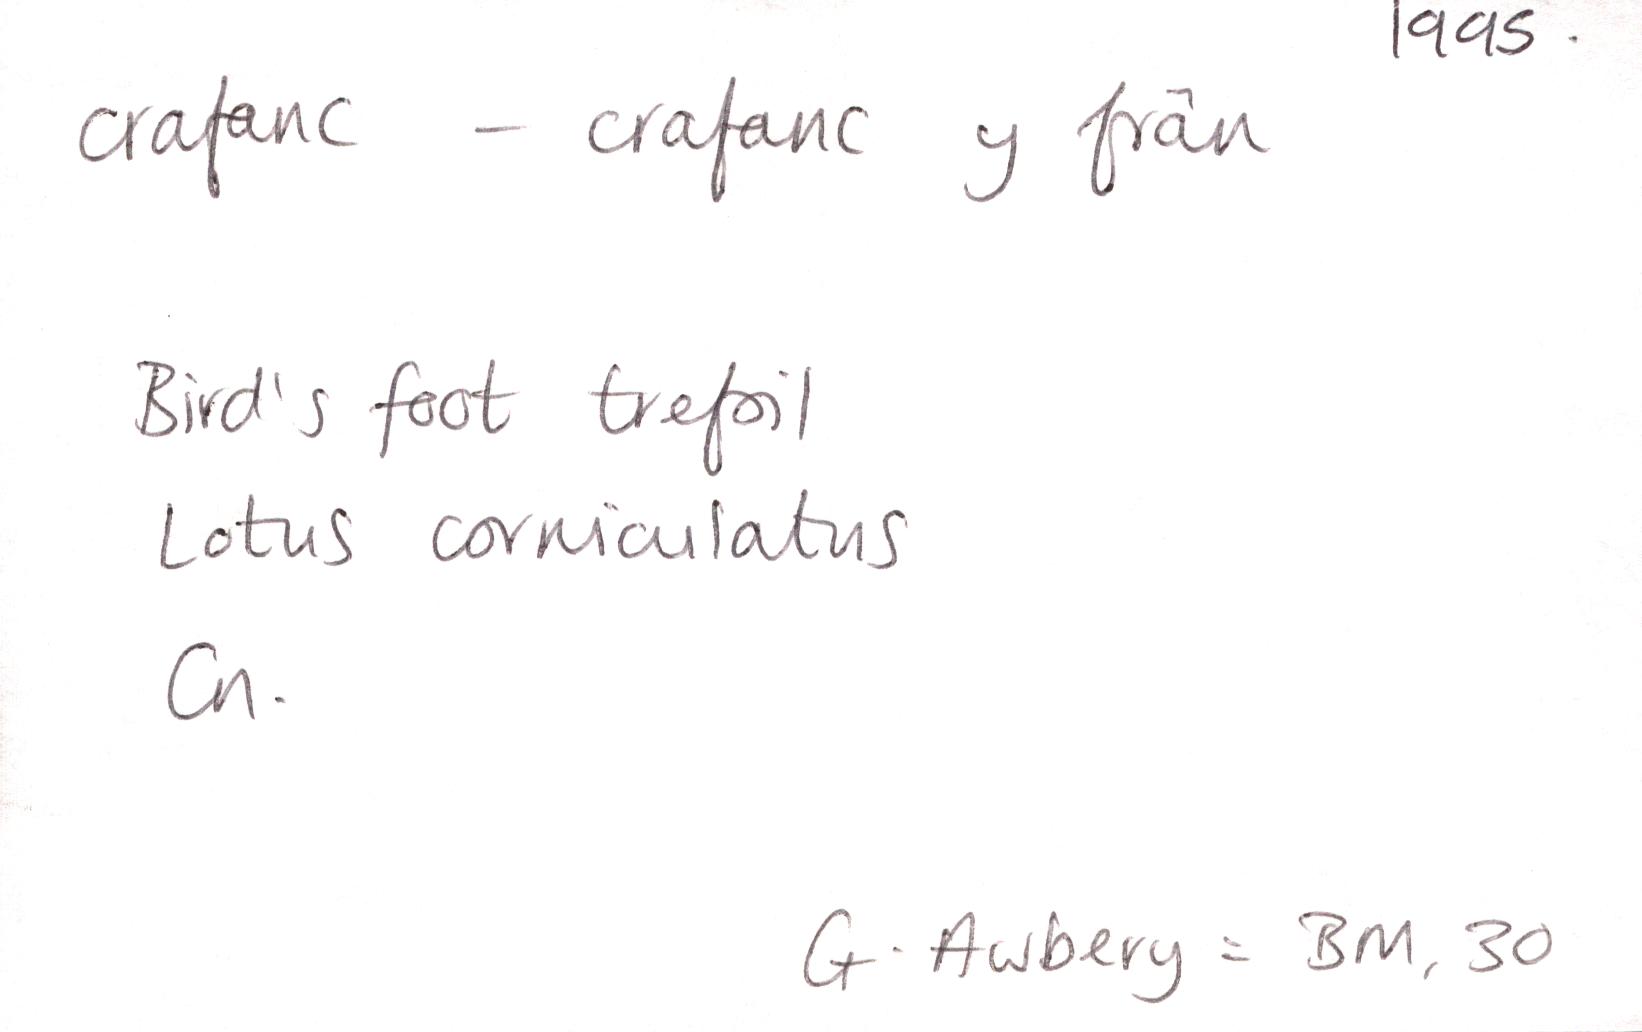 1995.
crafanc - crafanc y frân
Bird's foot trefoil
Lotus corniculatus
Cn.
G. Awbery = BM, 30